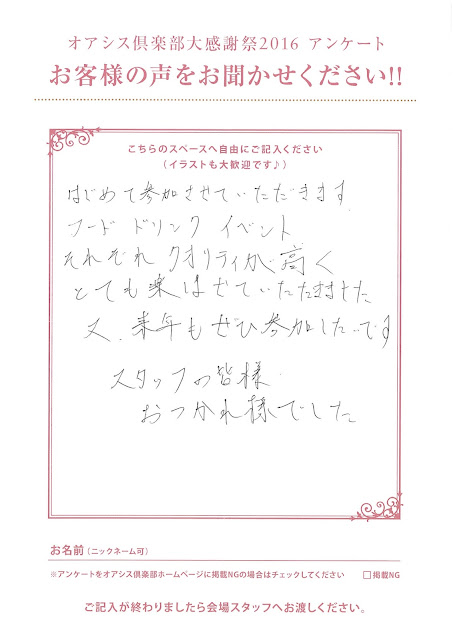 オアシス倶楽部大感謝祭2016 アンケート
お客様の声をお聞かせください!!
こちらのスペースへ自由にご記入ください
(イラストも大歓迎です♪)
はじめて参加させていただきます
フード ドリンク イベント
それぞれ クオリティが 高く
とても楽しませていただきました
又、来年もぜひ参加したいです
スタッフの皆様
おつかれ様でした
お名前(ニックネーム可)
※アンケートをオアシス倶楽部ホームページに掲載NGの場合はチェックしてください □掲載NG
ご記入が終わりましたら会場スタッフへお渡しください。